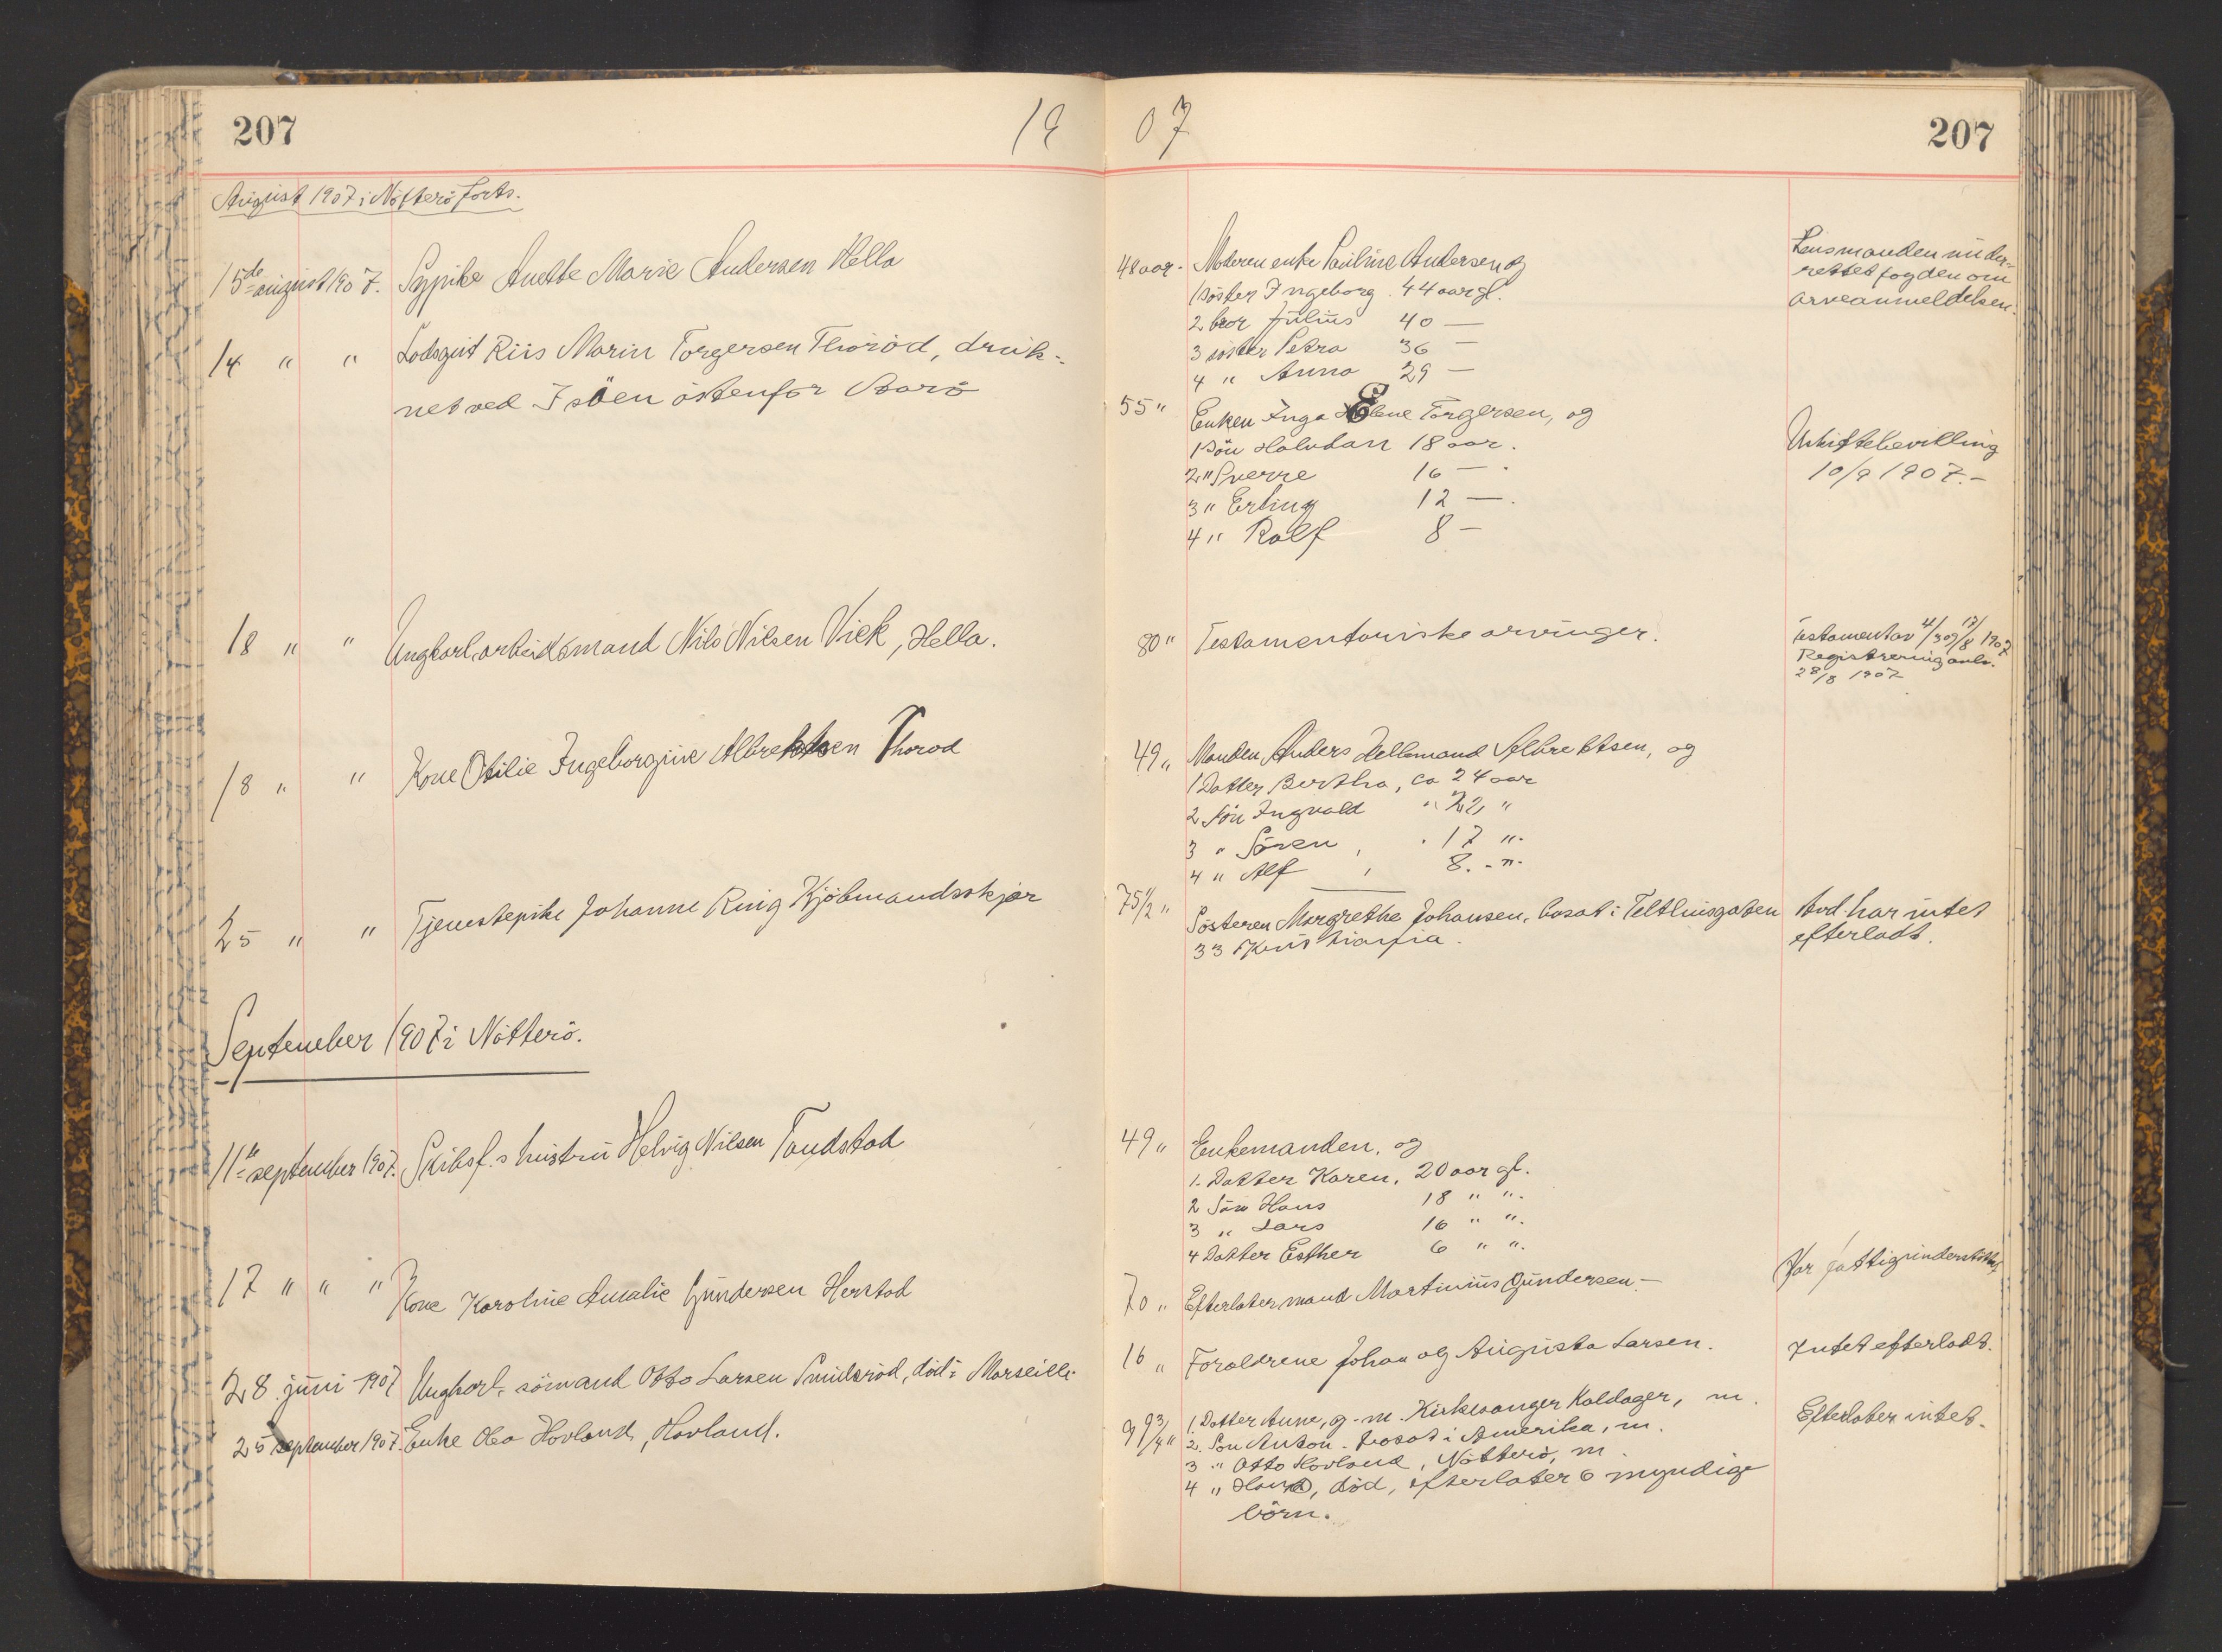 207
19 07
207
August 1907 i Nötterö forts.
15de august 1907. Sypike Anette Marie Andersen Hella
48 aar. Moderen enke Pauline Andersen og
1 söster Ingeborg. 44 aar gl.
2 bror Julius 40 —
3 söster Petra 36 —
4 " Anna 29 —
Lensmanden under-
rettet fogden om
arveanmeldelsen.
14 " " Lodsgut Riis Marin Torgersen Thoröd, druk-
net ved Isöen östenfor Barö
55 " Enken Inga Elene Torgersen, og
1 Sön Halvdan 18 aar.
2 " Sverre 16 — .
3 " Erling 12 — .
4 " Rolf 8 —
Uskiftebevilling
10/9 1907.-
18 " " Ungkarl, arbeidsmand Nils Nilsen Viek, Hella.
80 " Testamentariske arvinger.
Testamentar 4/3 og 17/8 1907
Registrering avh.
28/8 1907
18 " " Kone Otilie Ingeborgine Albrektsen Thorod
49 " Manden Anders Hellemand Albrektsen, og
1 Datter Bertha, ca 24 aar
2 Sön Ingvald " 22, "
3 " Sören , . 17 ".
4 " Alf , 8. - ".
25 " " Tjenestepike Johanne Ring Kjöbmandsskjær
75 1/2 " Sösteren Margrethe Johansen, bosat i Telthusgaten
33 Kristiania.
Avd. har intet
efterladt.
September 1907 i Nötterö.
11te september 1907. Skibsf.s hustru Helvig Nilsen Tandstad
49 " Enkemanden, og
1. Datter Karen, 20 aar gl.
2 Sön Hans 18 " ".
3 " Lars 16 " ".
4 Datter Esther 6 " ".
17 " " " Kone Karoline Amalie Gundersen Herstad
70 " Efterlater mand Martinius Gundersen.—
Har fattigunderstöttelse
28 juni 1907 Ungkarl, sömand Otto Larsen Smidsröd, död i Marseille.
16 " Foraldrene Johan og Augusta Larsen.
Intet efterladt.
25 september 1907. Enke Olea Hovland, Hovland.
99 3/4 " 1. Datter Anne, g. m. Kirkesanger Kaldager, m.
2. Sön Anton - bosat i Amerika, m.
3 " Otto Hovland, Nötterö, m.
4 " Hans, död, efterlater 6 myndige
börn.
Efterlater intet.